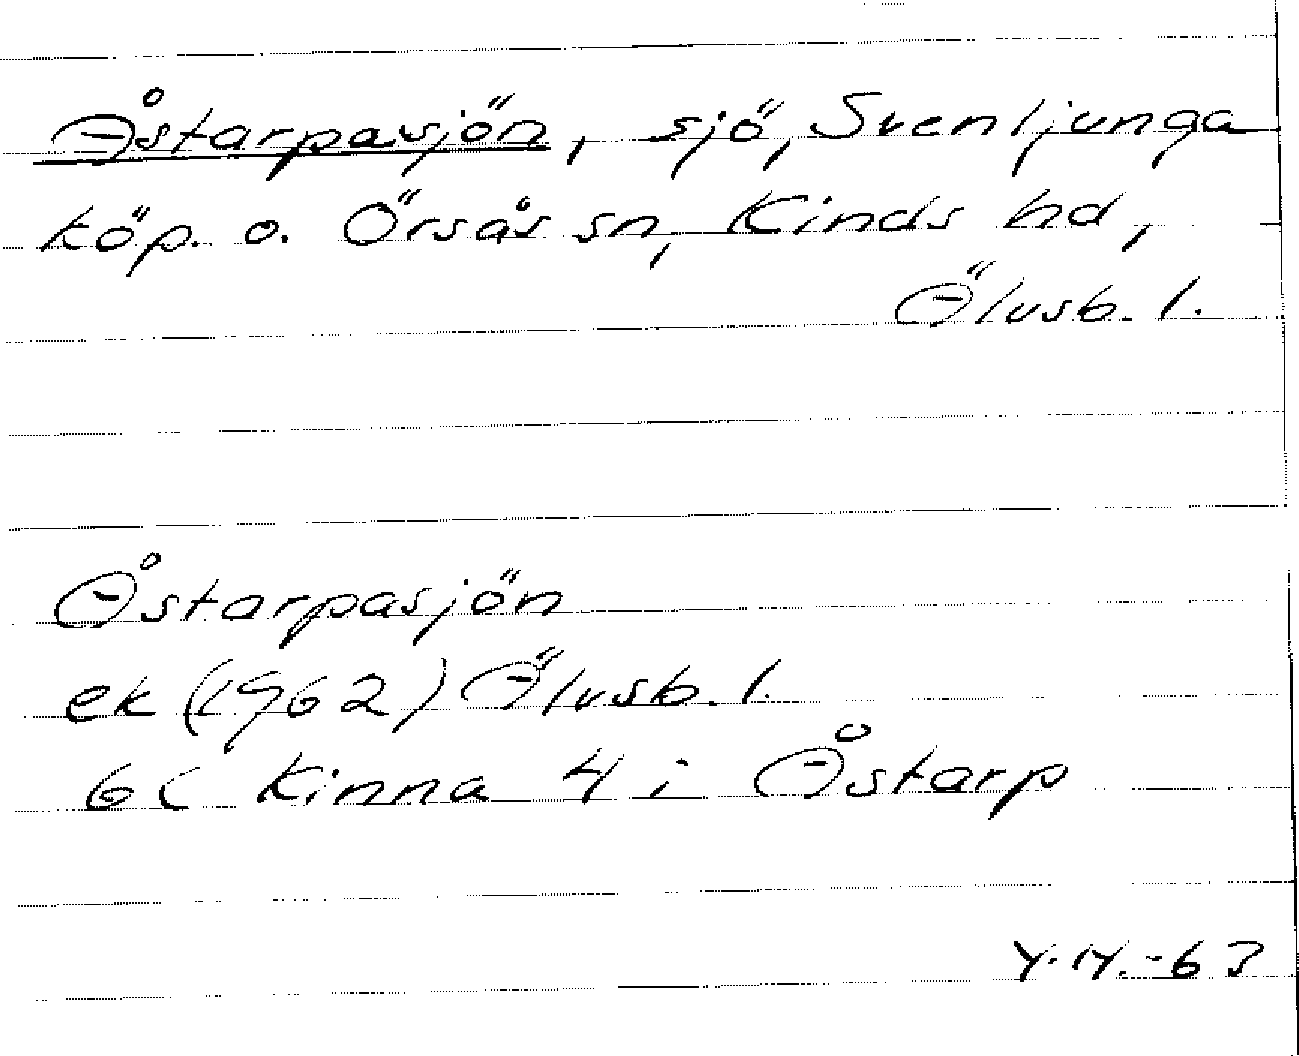 Åstarpasjön, sjö, Svenljunga
köp. o. Örsås sn, Kinds hd,
Älvsb. l.
Åstarpasjön
ek (1962) Älvsb. l.
6C Kinna 4 i Åstarp
-63